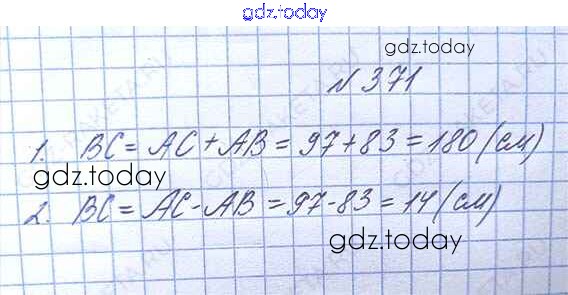 gdz.today
gdz.today
№ 371
1. BC = AC + AB = 97 + 83 = 180 (см)
gdz.today
2. BC = AC - AB = 97 - 83 = 14 (см)
gdz.today